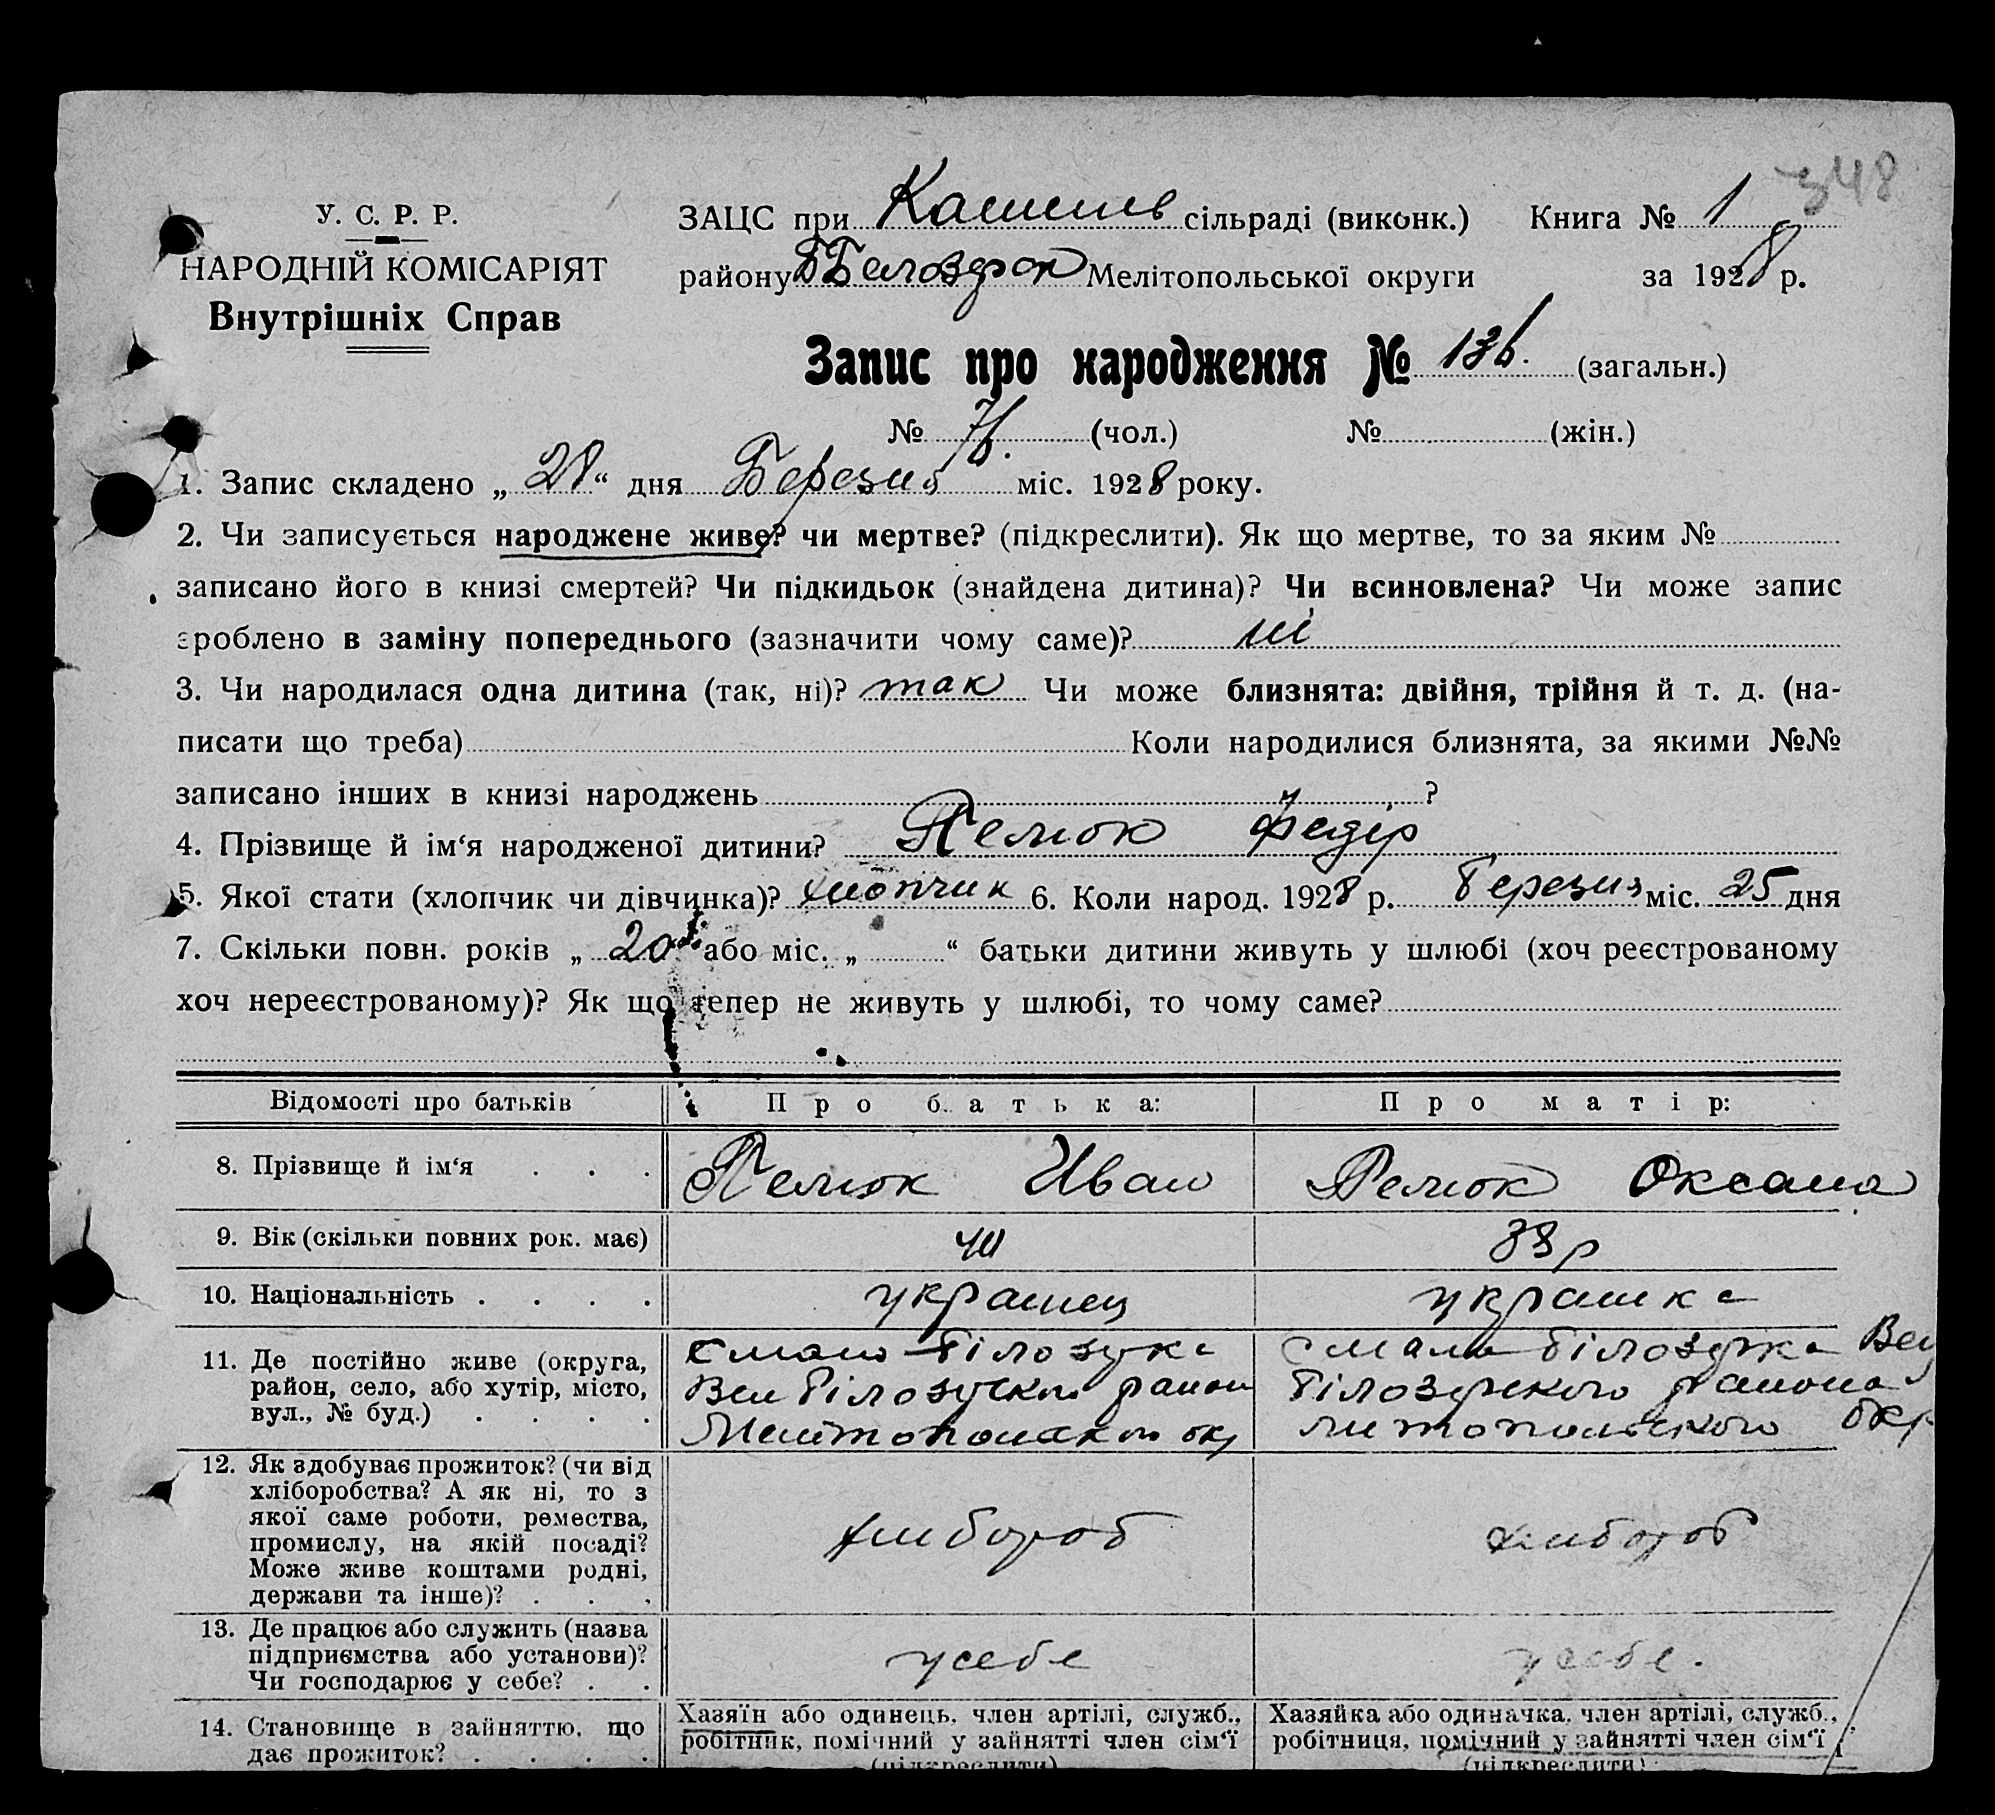 348
У. С. Р. Р.
НАРОДНІЙ КОМІСАРІЯТ
Внутрішніх Справ
ЗАЦС при сільраді (виконк.) Книга № 1
району Мелітопольської округи за 1928 р.
Запис про народження № 136. (загальн.)
№ 76. (чол.) № (жін.)
1. Запис складено „ 28 “ дня Березня міс. 1928 року.
2. Чи записується народжене живе? чи мертве? (підкреслити). Як що мертве, то за яким №
записано його в книзі смертей? Чи підкидьок (знайдена дитина)? Чи всиновлена? Чи може запис
зроблено в заміну попереднього (зазначити чому саме)? ні
3. Чи народилася одна дитина (так, ні)? так Чи може близнята: двійня, трійня й т. д. (на-
писати що треба) Коли народилися близнята, за якими №№
записано інших в книзі народжень ?
4. Прізвище й ім‘я народженої дитини? Пелюок Федір
5. Якої стати (хлопчик чи дівчинка)? хлопчик 6. Коли народ. 1928 р. Березня міс. 25 дня
7. Скільки повн. років „ 20 або міс. „ “ батьки дитини живуть у шлюбі (хоч реєстрованому
хоч нереєстрованому)? Як що тепер не живуть у шлюбі, то чому саме?
Відомості про батьків Про батька: Про матір:
8. Прізвище й ім‘я . . . Пелюок Иван Пелюок Оксана
9. Вік (скільки повних рок. має) 40 38 р
10. Національність . . . . украинец украинка
11. Де постійно живе (округа,
район, село, або хутір, місто,
вул., № буд.) . . . .
с мало Білозерка
Вел Білозерского району
Мелитопольского окр
с мала Білозерка Вел
Білозерского району
литопольского окр
12. Як здобуває прожиток? (чи від
хліборобства? А як ні, то з
якої саме роботи, ремества,
промислу, на якій посаді?
Може живе коштами родні,
держави та інше)? . . .
хлибороб хлибороб
13. Де працює або служить (назва
підприємства або установи)?
Чи господарює у себе? . .
у себе у себе.
14. Становище в зайняттю, що
дає прожиток? . . . .
Хазяїн або одинець, член артілі, служб.,
робітник, помічний у зайнятті член сім‘ї
(підкреслити)
Хазяйка або одиначка, член артілі, служб.,
робітниця, помічний у зайнятті член сім‘ї
(підкреслити)